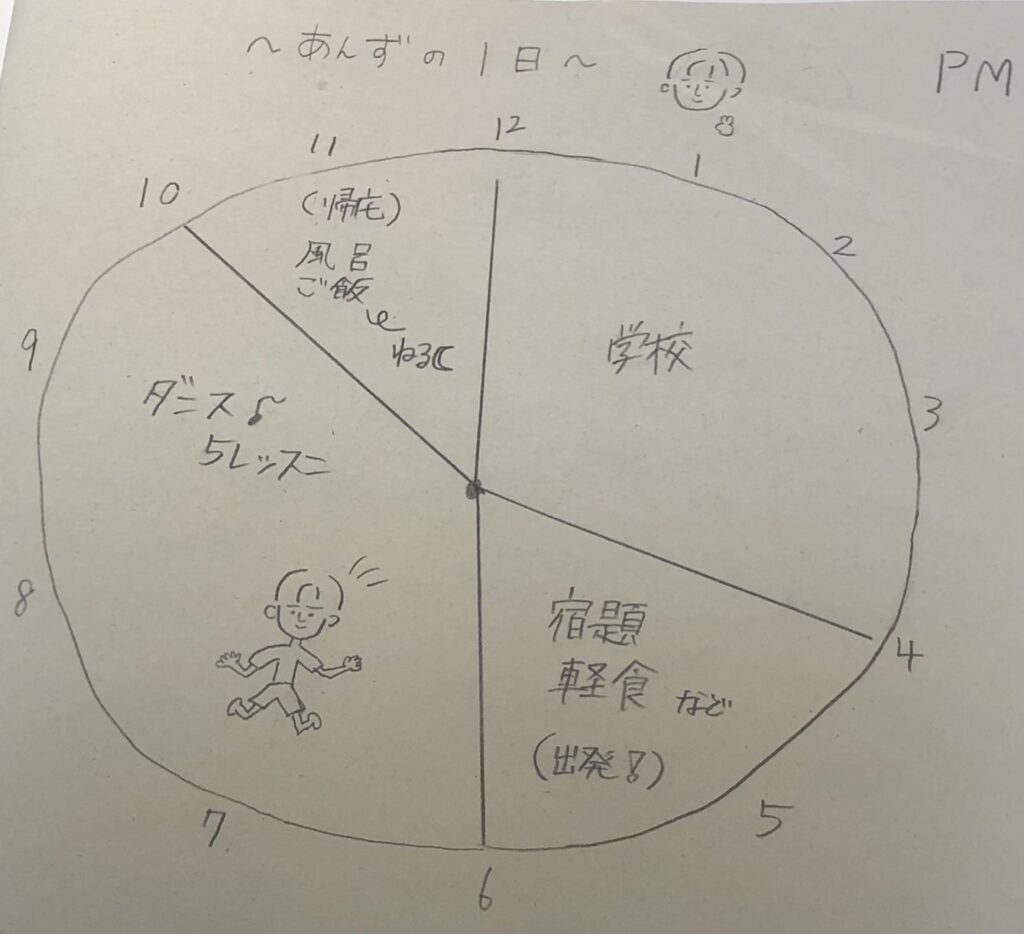 ～あんずの1日～
PM
12
1
2
3
4
5
6
7
8
9
10
11
学校
宿題
軽食 など
(出発!)
ダンス♪
5レッスン
(帰宅)
風呂
ご飯
ねる